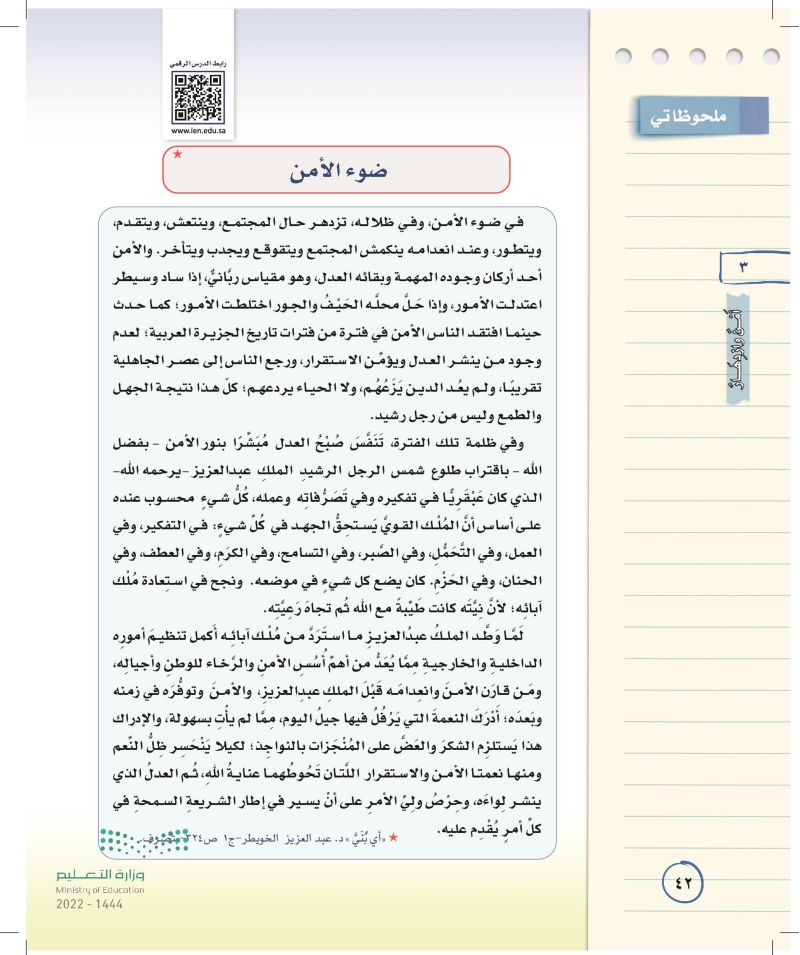 رابط الدرس الرقمي
www.ien.edu.sa
ملحوظاتي
٣
أمن وازدهار
ضوء الأمن ★
في ضوء الأمن، وفي ظلاله، تزدهر حال المجتمع، وينتعش، ويتقدم،
ويتطور، وعند انعدامه ينكمش المجتمع ويتقوقع ويجدب ويتأخر. والأمن
أحد أركان وجوده المهمة وبقائه العدل، وهو مقياس ربَّانيٌّ، إذا ساد وسيطر
اعتدلت الأمور، وإذا حَلَّ محلَّه الحَيْفُ والجور اختلطت الأمور؛ كما حدث
حينما افتقد الناس الأمن في فترة من فترات تاريخ الجزيرة العربية؛ لعدم
وجود من ينشر العدل ويؤمِّن الاستقرار، ورجع الناس إلى عصر الجاهلية
تقريبًا، ولم يعُد الدين يَزَعُهُم، ولا الحياء يردعهم؛ كلّ هذا نتيجة الجهل
والطمع وليس من رجل رشيد.
وفي ظلمة تلك الفترة، تَنَفَّسَ صُبْحُ العدل مُبَشِّرًا بنور الأمن – بفضل
الله – باقتراب طلوع شمس الرجل الرشيدِ الملكِ عبدالعزيز –يرحمه الله–
الذي كان عَبْقَرِيًّا في تفكيره وفي تَصَرُّفاتِه وعمله، كُلُّ شيءٍ محسوب عنده
على أساس أنَّ المُلْك القويَّ يَستحِقُّ الجهد في كُلِّ شيءٍ: في التفكير، وفي
العمل، وفي التَّحَمُّلِ، وفي الصَّبر، وفي التسامح، وفي الكرَم، وفي العطف، وفي
الحنان، وفي الحَزْمِ. كان يضع كل شيء في موضعه. ونجح في استِعادة مُلْك
آبائه؛ لأنَّ نِيَّتَه كانت طَيِّبةً مع الله ثُم تجاهَ رَعِيَّتِه.
لَمَّا وَطَّد الملكُ عبدُالعزيزِ ما استَرَدَّ من مُلْك آبائه أكمل تنظيمَ أموره
الداخليةِ والخارجيةِ مِمَّا يُعَدُّ من أهمِّ أُسُسِ الأمنِ والرَّخاء للوطنِ وأجيالِه،
ومَن قارَن الأمنَ وانعِدامَه قَبْلَ الملكِ عبدِالعزيزِ، والأمنَ وتوفُّرَه في زمنه
وبَعدَه؛ أَدْرَكَ النعمةَ التي يَرْفُلُ فيها جيلُ اليوم، مِمَّا لم يأْتِ بسهولة، والإدراك
هذا يَستلزِم الشكرَ والعَضَّ على المُنْجَزات بالنواجِذ؛ لكيلا يَنْحَسِر ظِلُّ النِّعم
ومنها نعمتا الأمنِ والاستقرارِ اللَّتان تَحُوطُهما عنايةُ اللهِ، ثُم العدلُ الذي
ينشر لِواءَه، وحِرْصُ وليِّ الأمرِ على أنْ يسير في إطار الشريعةِ السمحةِ في
كلِّ أمرٍ يُقْدِم عليه.
★ «أي بُنَيَّ» د. عبد العزيز الخويطر–ج١ ص٣٢٤ بتصرف.
وزارة التعليم
Ministry of Education
2022 - 1444
٤٢